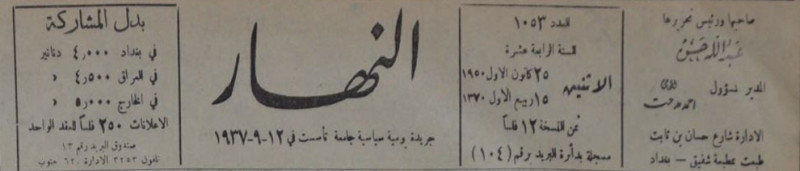 صاحبها ورئيس تحريرها
عبدالله حسن
المدير المسؤول
احمد مدحت
الادارة شارع حسان بن ثابت
طبعت بمطبعة شفيق - بغداد
العدد ١٠٥٣
السنة الرابعة عشرة
الاثنين
٢٥ كانون الاول ١٩٥٠
١٥ ربيع الاول ١٣٧٠
ثمن النسخة ١٢ فلساً
مسجلة بدائرة البريد برقم (١٠٤)
النهار
جريدة يومية سياسية جامعة تأسست في ١٢-٩-١٩٣٧
بدل المشاركة
في بغداد ٤,٠٠٠ دنانير
في العراق ٤,٥٠٠ »
في الخارج ٥,٠٠٠ »
الاعلانات ٢٥٠ فلساً للعقد الواحد
صندوق البريد رقم ١٣
تلفون ٣٢٥٣ الادارة ٦٢ جنوب